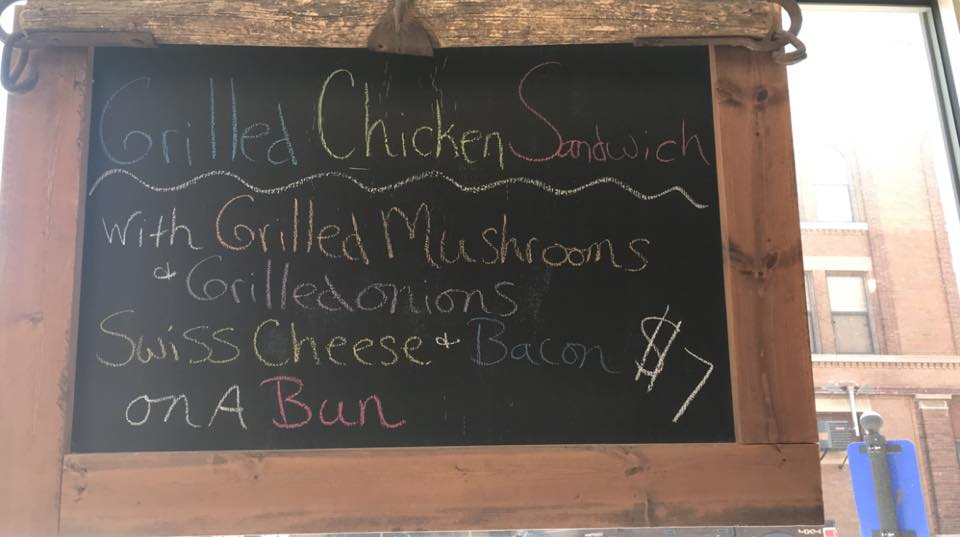 Grilled Chicken Sandwich
with Grilled Mushrooms
& Grilled onions
Swiss Cheese & Bacon $7
on A Bun